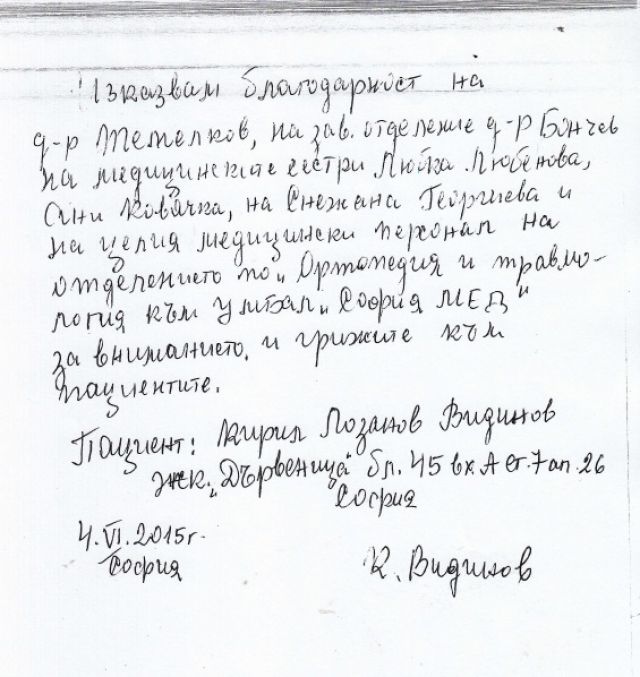 Изказвам благодарност на
д-р Темелков, на зав. отделение д-р Бончев
на медицинските сестри Любка Любенова,
Ани Ковачка, на Снежана Георгиева и
на целия медицински персонал на
отделението по „Ортопедия и травмо-
логия към УМБАЛ „София МЕД"
за вниманието, и грижите към
пациентите.
Пациент: Кирил Лозанов Видинов
жк. „Дървеница" бл. 45 вх А ет. 7 ап. 26
София
4. VI. 2015 г.
София
К. Видинов